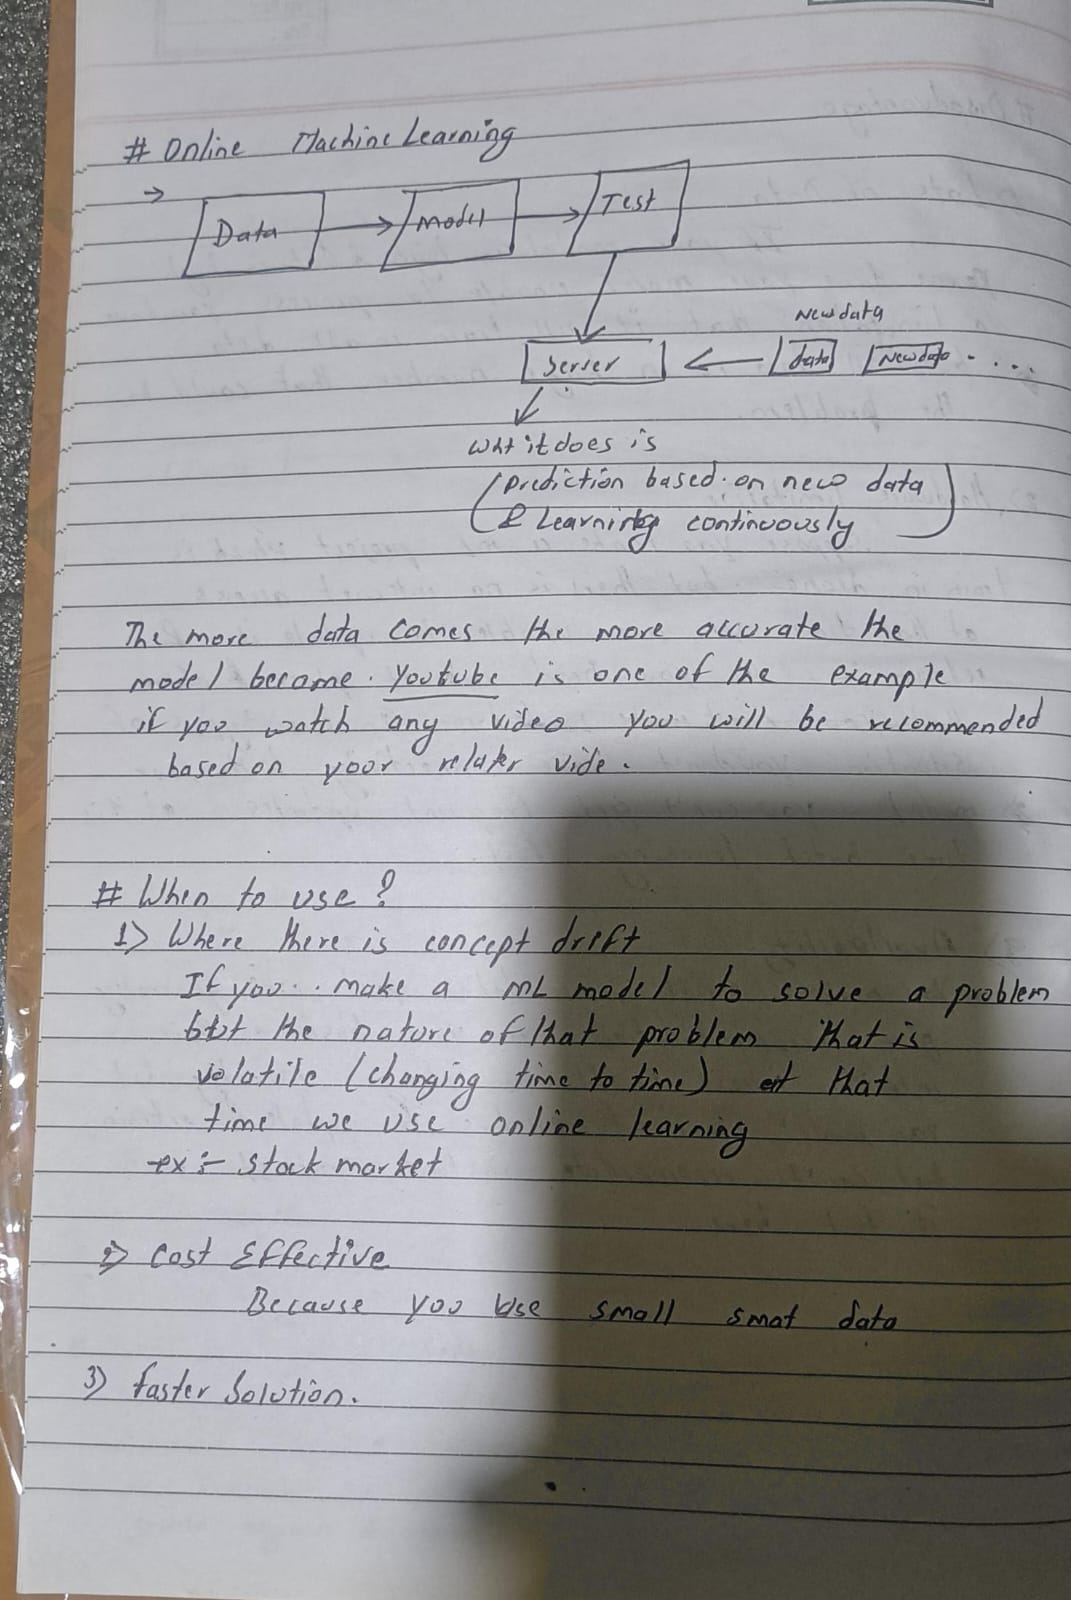 # Online Machine Learning
→ Data → Model → Test
New data
Server ← data New data - . . .
what it does is
(prediction based on new data
& Learning continuously)
The more data comes the more accurate the
model become. Youtube is one of the example
if you watch any video you will be recommended
based on your relater vide.
# When to use?
1) Where there is concept drift
If you.. make a ML model to solve a problem
but the nature of that problem that is
volatile (changing time to time) at that
time we use online learning
ex :- stock market
2) Cost Effective
Because you use small data
3) faster Solution.